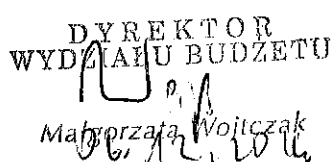 DYREKTOR
WYDZIAŁU BUDŻETU
Małgorzata Wojtczak